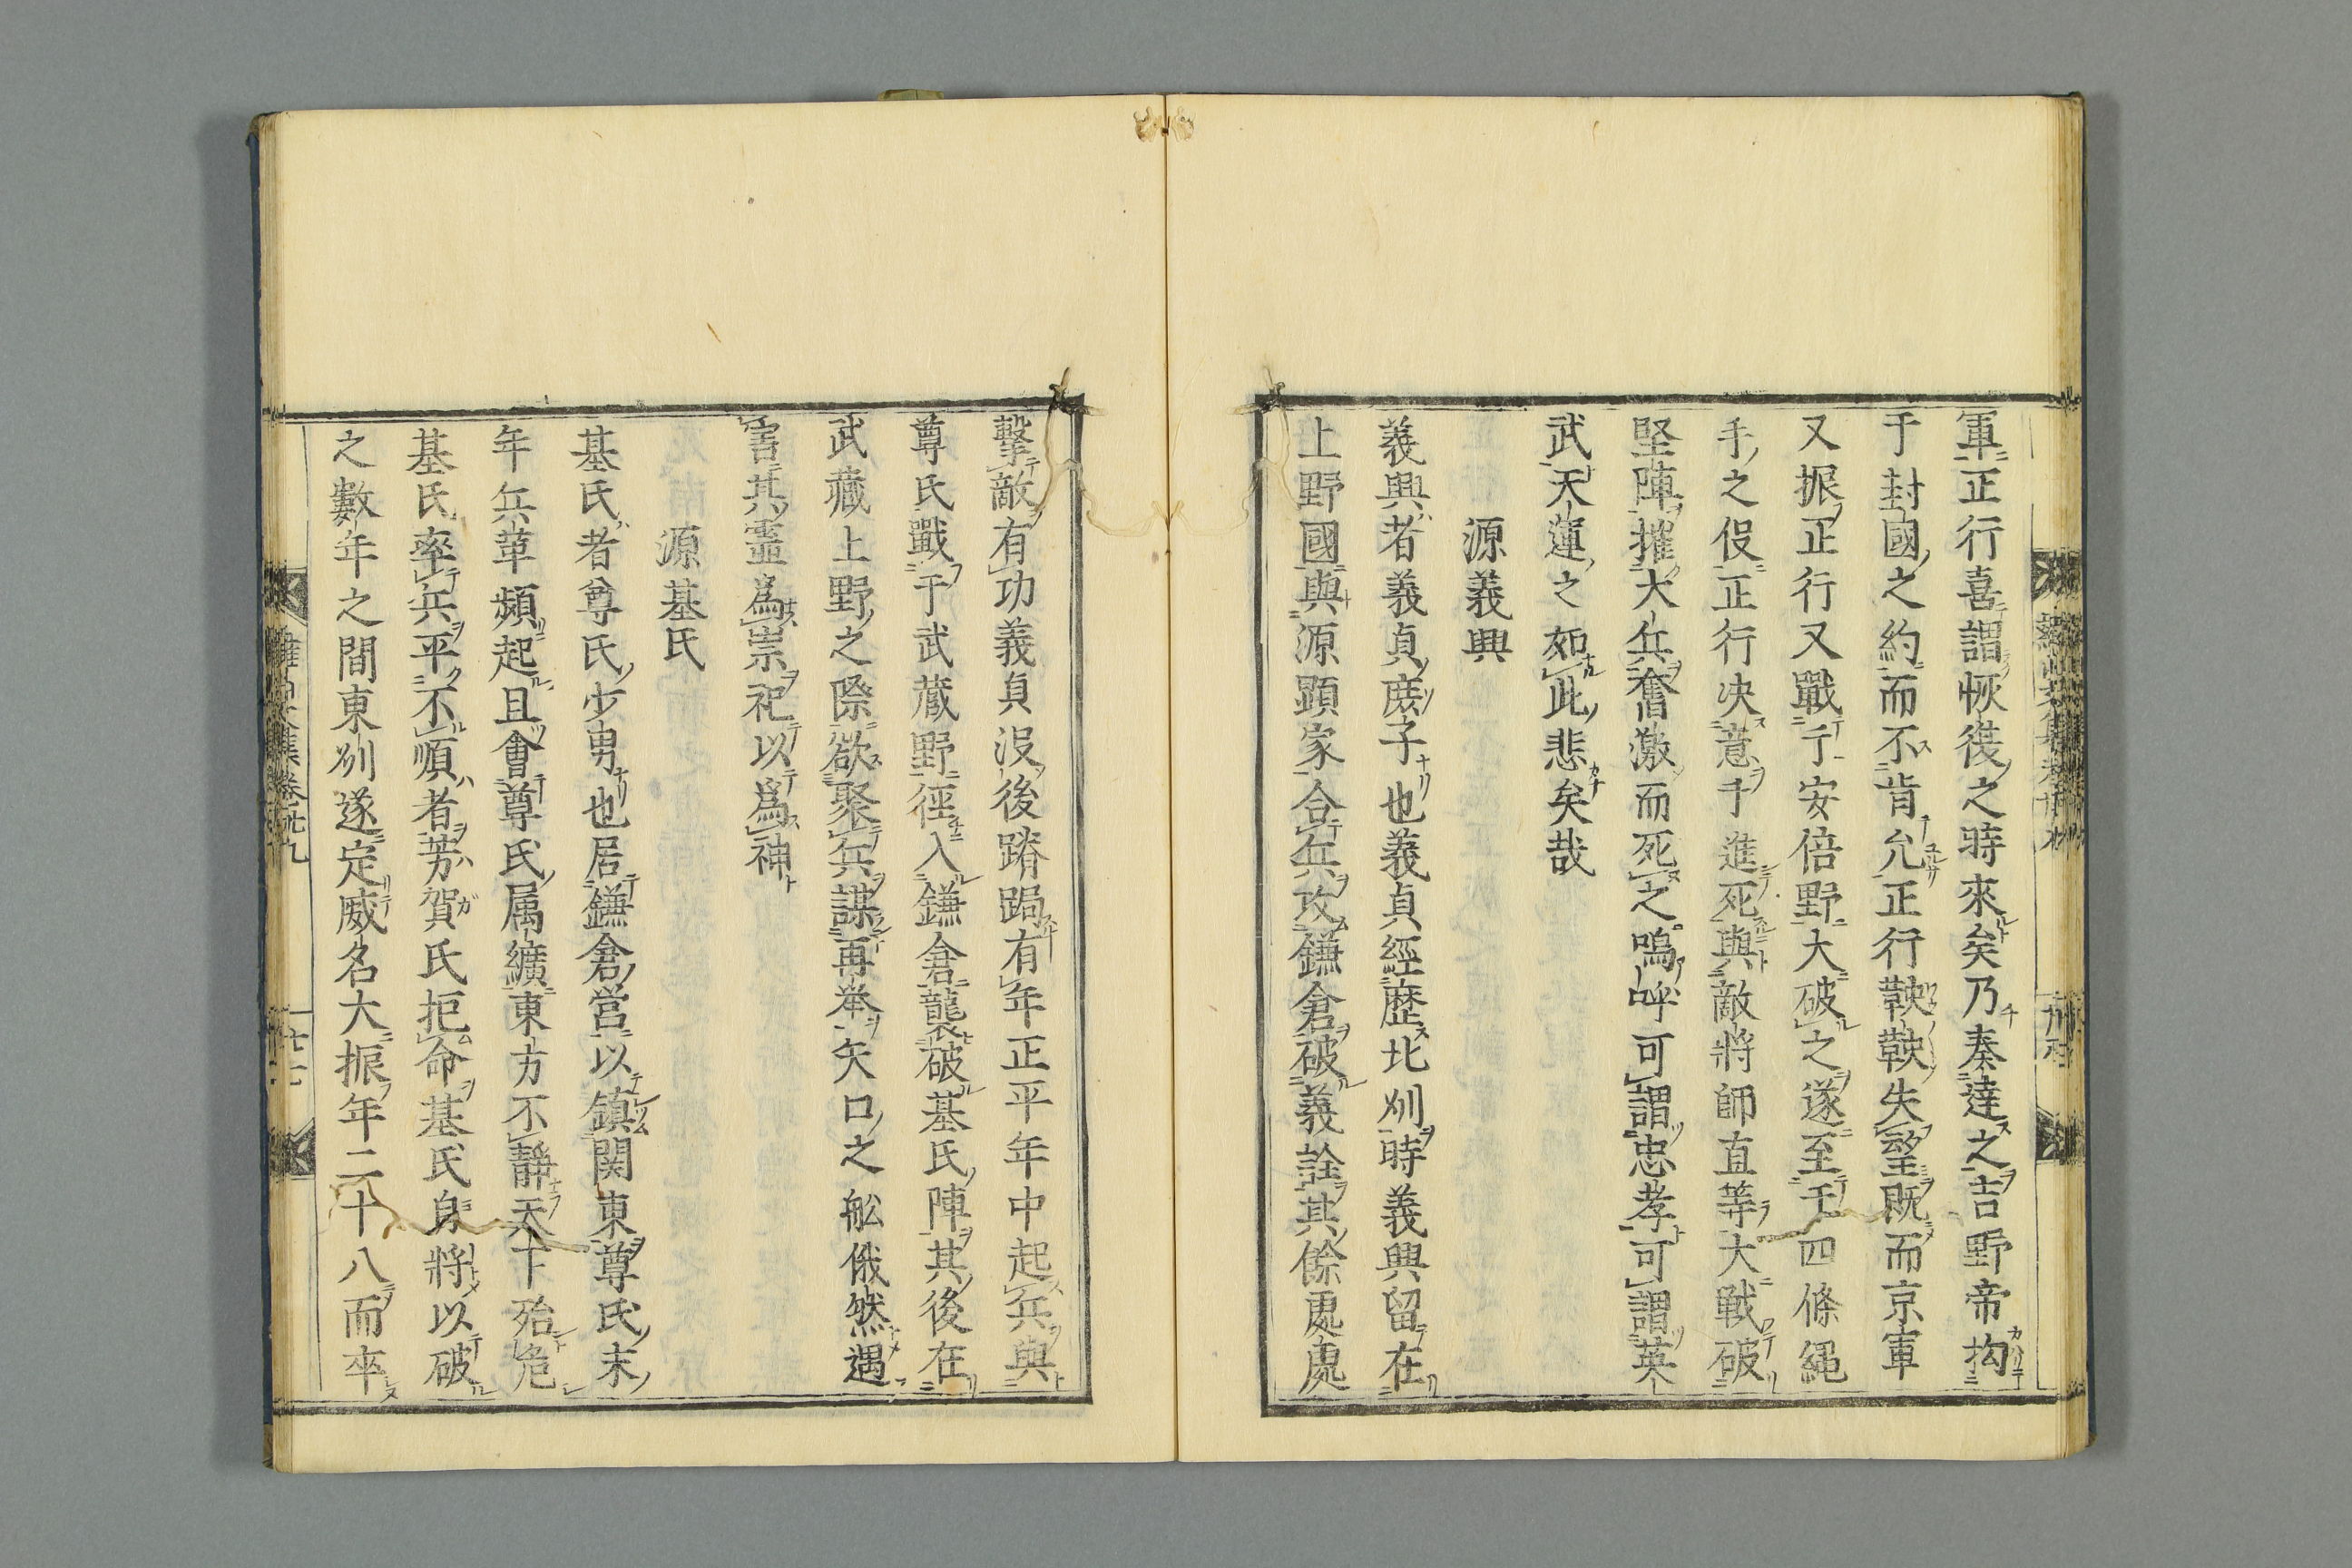 軍正行喜謂恢復之時來矣乃奏達之吉野帝拘
于封國之約而不肯允正行鞅鞅失望既而京軍
又振正行又戰于安倍野大破之遂至于四條縄
手之役正行决意于進死與敵將師直等大戰破
堅陣摧大兵奮激而死之嗚呼可謂忠孝可謂英
武天運之如此悲矣哉
源義興
義興者義貞庶子也義貞經歴北州時義興留在
上野國與源顕家合兵攻鎌倉破義詮其餘處處
擊敵有功義貞没後蹐跼有年正平年中起兵與
尊氏戰于武蔵野徑入鎌倉襲破基氏陣其後在
武藏上野之際欲聚兵謀再举矢口之舩俄然遇
害其靈爲崇祀以爲神
源基氏
基氏者尊氏少男也居鎌倉営以鎮関東尊氏末
年兵革頻起且會尊氏属纊東方不静天下殆危
基氏率兵平不順者芳賀氏拒命基氏自將以破
之數年之間東州遂定威名大振年二十八而卒